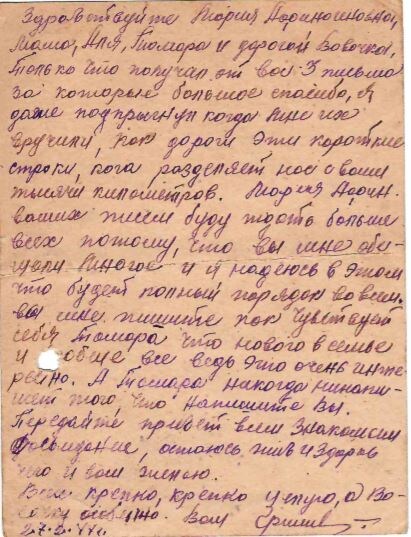 Здравствуйте Мария
Мама, Аля, Тамара и дорогой Вовочка,
Только что получил от вас 3 письма
за которые большое спасибо, я
даже подпрыгнул когда мне их
вручили, как дороги эти короткие
строки, кога разделяет нас с вами
тысячи километров. Мария
ваших писем буду ждать больше
всех потому, что вы мне обе-
щали многое и я надеюсь в этом
что будет полный порядок
вы мне пишите как чувствует
себя Тамара что нового в семье
и вообще все ведь это очень инте-
ресно. А Тамара никогда ненапи-
шет того, что напишите Вы.
Передайте привет всем знакомым
Досвидание, остаюсь жив и здоров
чего и вам желаю.
Всех крепко, крепко целую, а Во-
вочку особенно. Ваш